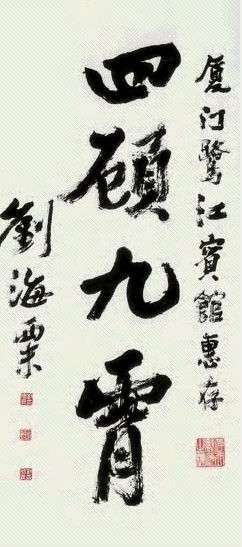 厦门鹭江賓館惠存
四顾九霄
劉海粟